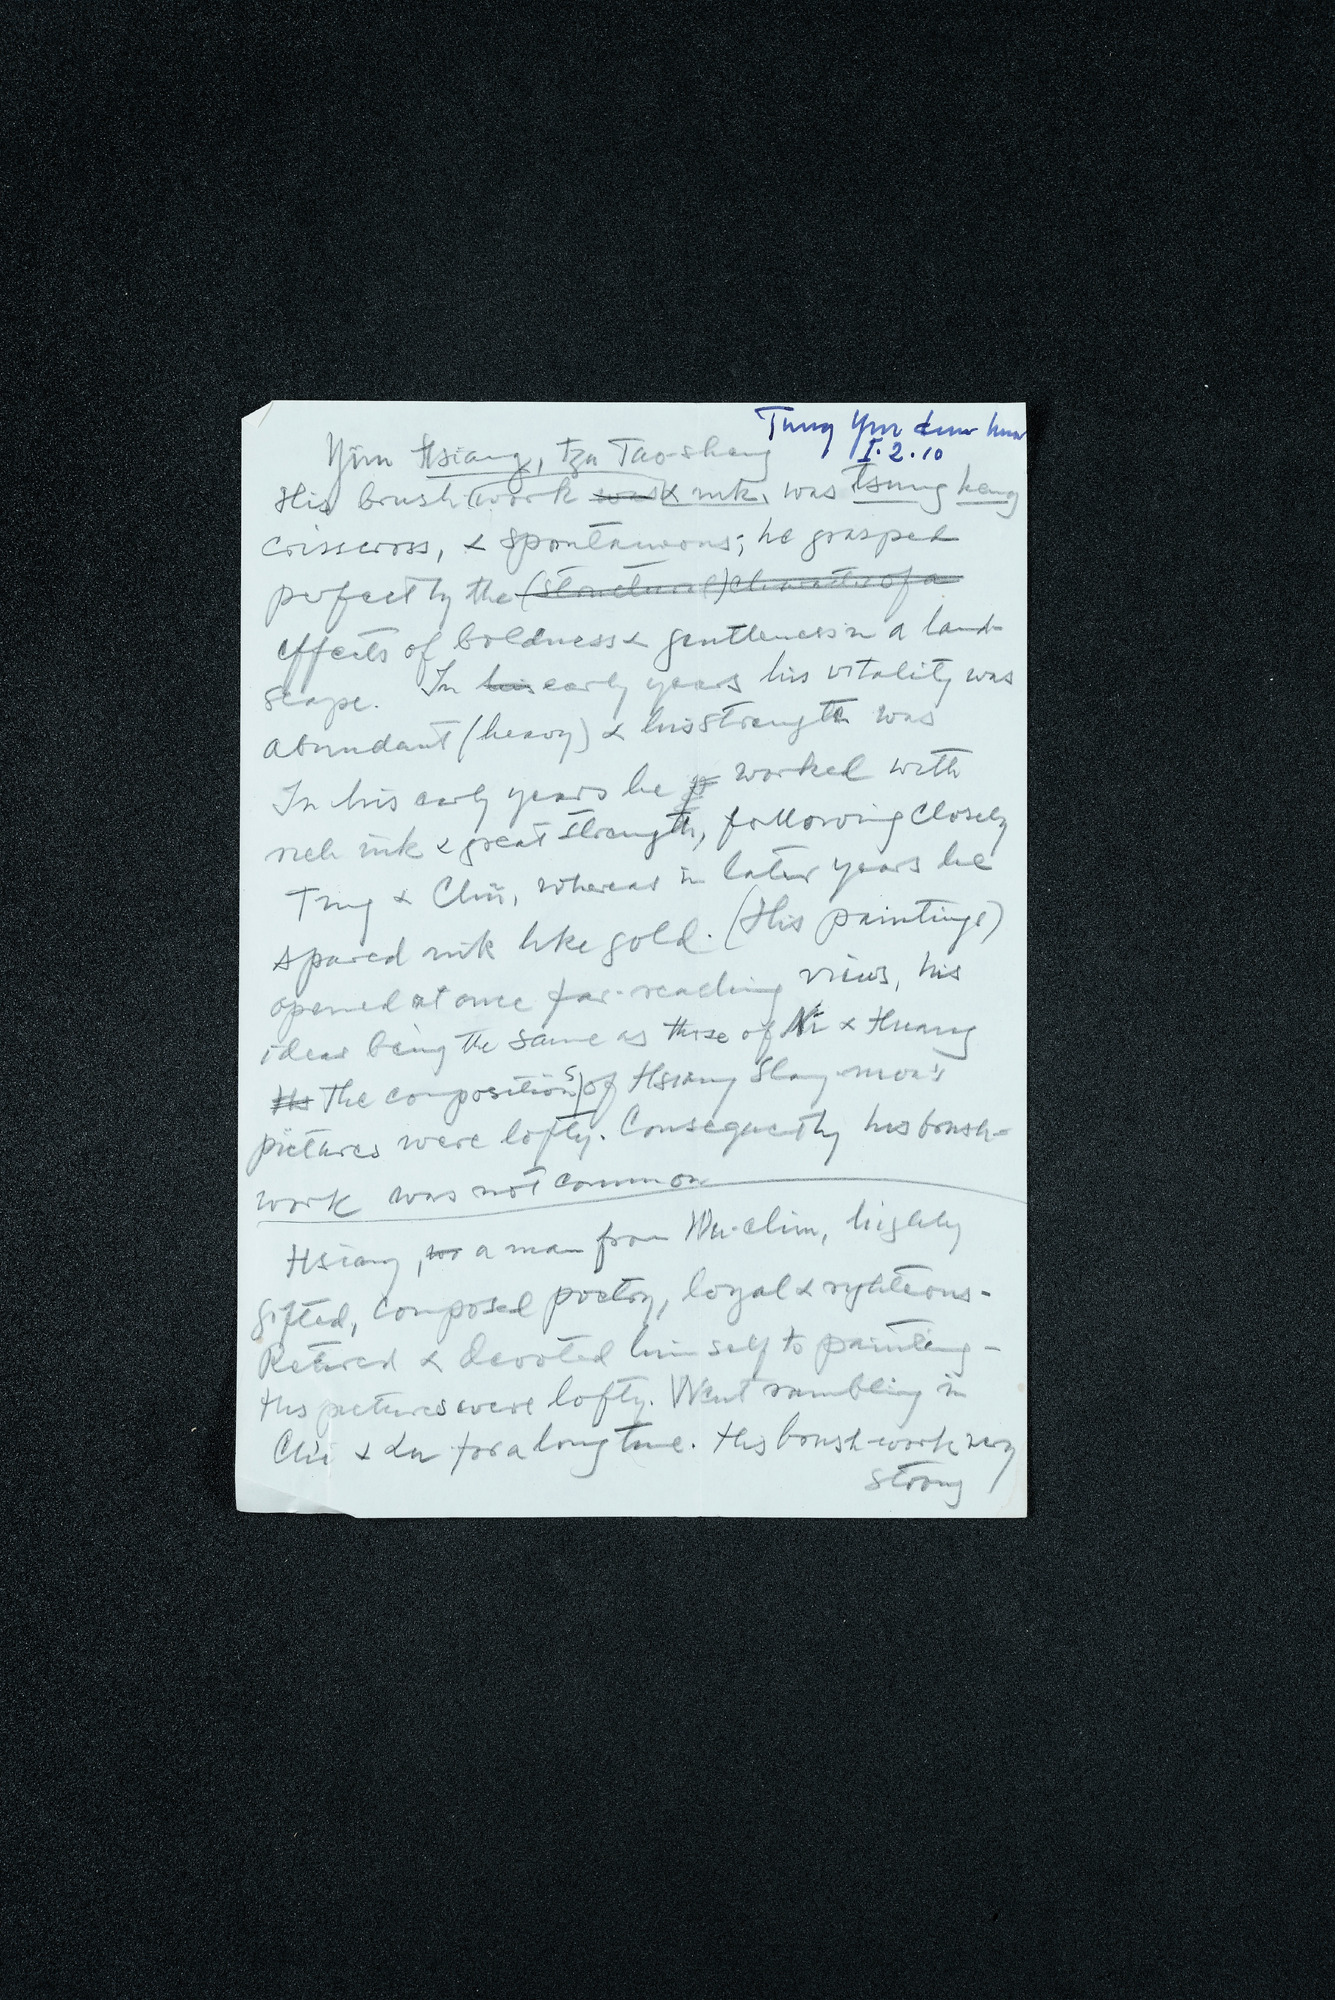 Tung Yin
I. 2. 10
Yün Hsiang, tzu Tao-sheng
His brush (work was & ink, was tsung heng
crisscross, & spontaneous; he grasped
perfectly the (structural) character of a
effects of boldness & gentleness in a land-
scape. In his early years his vitality was
abundant (heavy) & his strength was
In his early years he worked with
rich ink & great strength, following closely
Tung & Chü, whereas in later years he
spared ink like gold. (His paintings)
opened at once far-reaching views, his
ideas being the same as those of Ni & Huang
His The compositions) of Hsiang Shang-mo's
pictures were lofty. Consequently his brush-
work was not common
Hsiang, was a man from Wu-chin, highly
gifted, composed poetry, loyal & righteous-
Retired & devoted himself to painting-
His pictures were lofty. Went rambling in
Ch'i & Lu for a long time. His brush-work very
strong